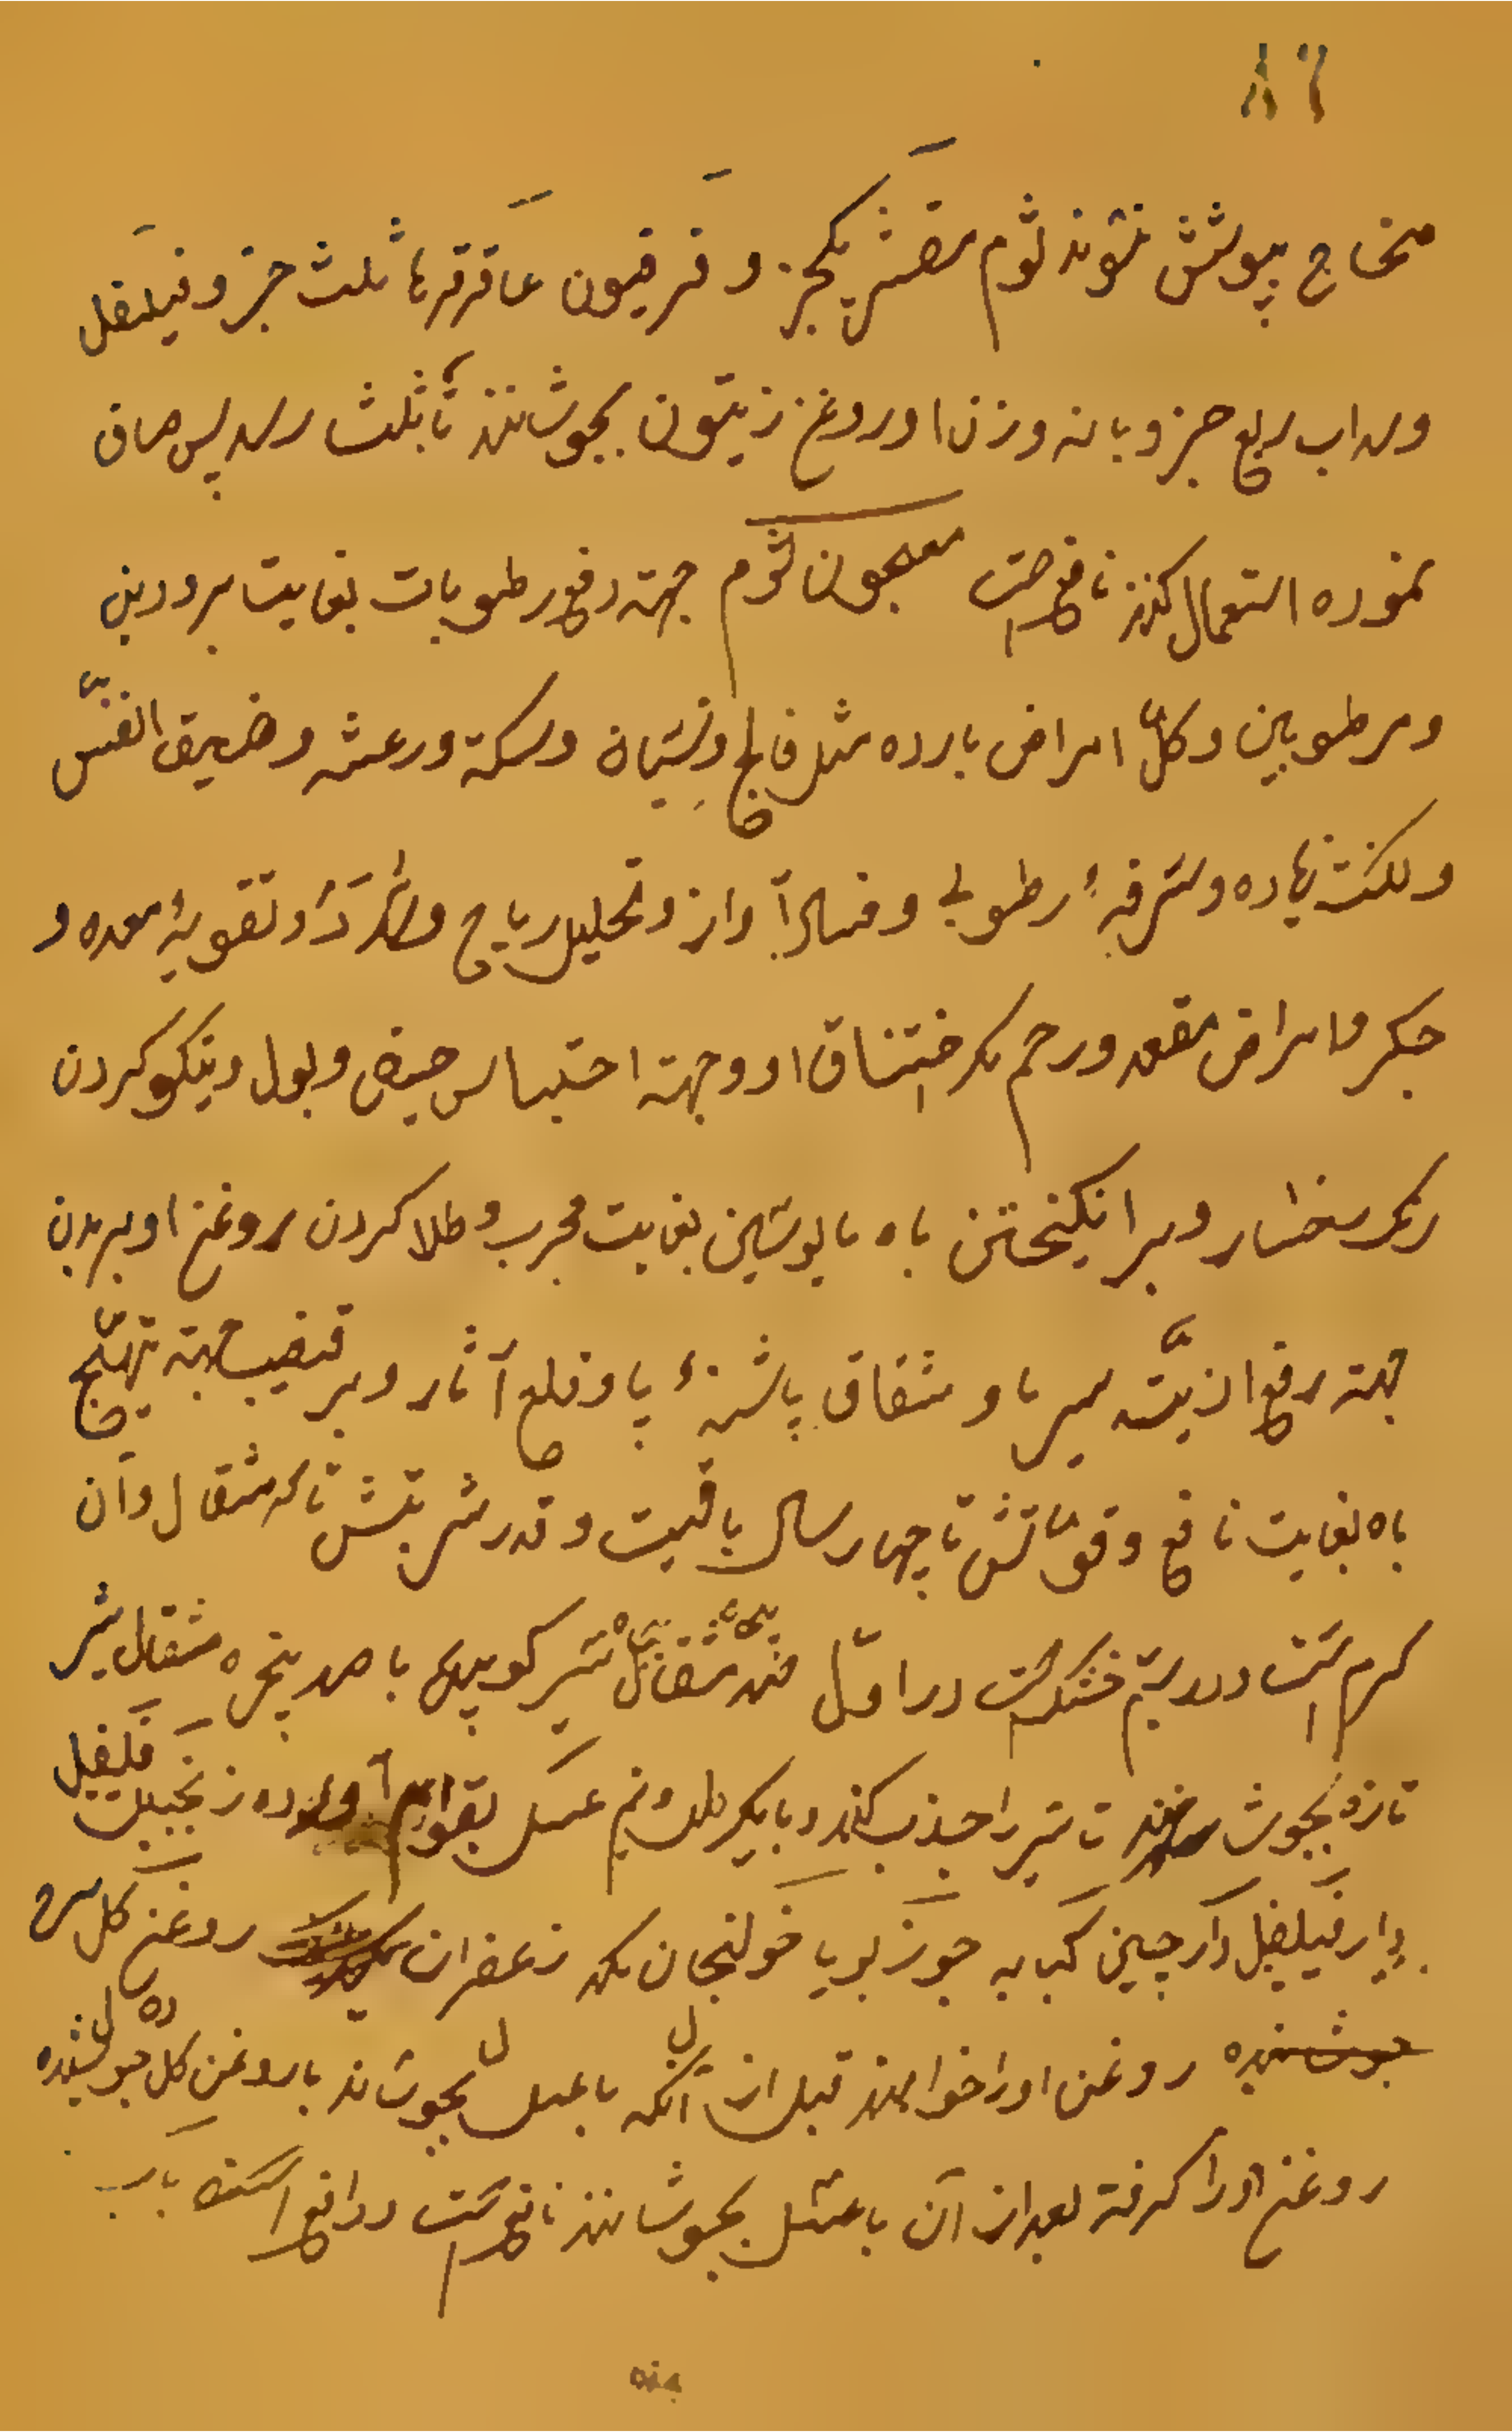 ۸۶
محتاج پپوشش نشوند ثوم مقشر یکجز و فرفیون عاقرقرها ثلث جز و فیلفل
وسداب ربع جز و بانه وزن او روغن زیتون بجوشانند تا بثلث رسد پس صاف
نموده استعمال کنند نافع است معجون ثوم جهته دفع رطوبات بغایت برودین
ومرطوبین وکل امراض بارده مثل فالج ونسیان وسکته ورعشه وضیق النفس
ولکنت زیاده وسرفهٔ رطوبی وفساد آواز وتحلیل ریاح و تقویهٔ معده و
جکر وامراض مقعد ورحم مکر اختناق او وجهته احتباس حیض وبول ونیکو کردن
رنک رخسار وبرانکیختن باه مایوسین بغایت مجرب وطلا کردن روغن او بربدن
جهته رفع اذیت سرما و شقاق پاشنهٔ پا وقلع آثار وبر قضیب جهته تهیّج
باه بغایت نافع وقوّتش تا چهار سال باقیست وقدر شربتش تا سه مثقال وآن
کرم است ودر سیّم خشکست در اوّل مثقال سیر کوبیده با صد پنجره مثقال شیر
تازه بجوشانند تا شیر را جذب کند وبا یکرطل ونیم عسل بقوام آورده زنجبیل فلفل
دار فیلفل دارچینی کبابه جوز بویا خولنجان زعفران روغن کل سرخ
جوشیده روغن اورا خواهند قبل از آنکه با عسل بجوشاند با روغن کل جوشیده
روغن اورا کرفته بعد از آن با عسل بجوشانند نافع است